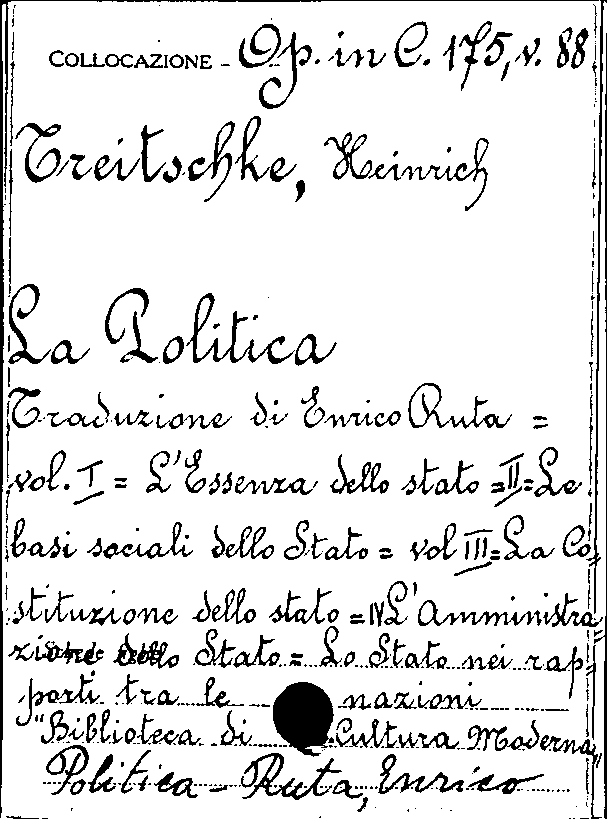 COLLOCAZIONE - Op. in C. 175, v. 88
Treitschke, Heinrich
La Politica
Traduzione di Enrico Ruta =
vol. I = L'Essenza dello stato = II = Le
basi sociali dello Stato = vol III = La Co=
stituzione dello stato = IV L'Amministra=
zione dello Stato = Lo Stato nei rap=
porti tra le nazioni
"Biblioteca di Cultura Moderna"
Politica - Ruta, Enrico